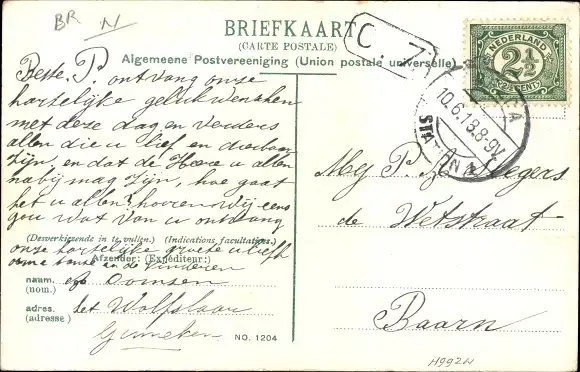 BR N
BRIEFKAART
(CARTE POSTALE)
Algemeene Postvereeniging (Union postale universelle)
C. Z.
NEDERLAND
2½
CENT
10.6.18.8-9V.
Beste. P. ontvang onze
hartelijke gelukwenschen
met deze dag en verders
allen die u lief en dierbaar
zijn, en dat de Heere u allen
nabij mag zijn, hoe gaat
het u allen? hooren wij eens
gou wat van u ontvang
(Desverkiezende in te vullen.) (Indications facultatives.)
onze hartelijke groete u liefh
oome tante en de kinderen
Afzender: (Expéditeur:)
naam.
(nom.)
Oomsen
adres.
(adresse)
het Wolfslaar
Ginneken
NO. 1204
Mej P Slegers
de Wetstraat
Baarn
H992N